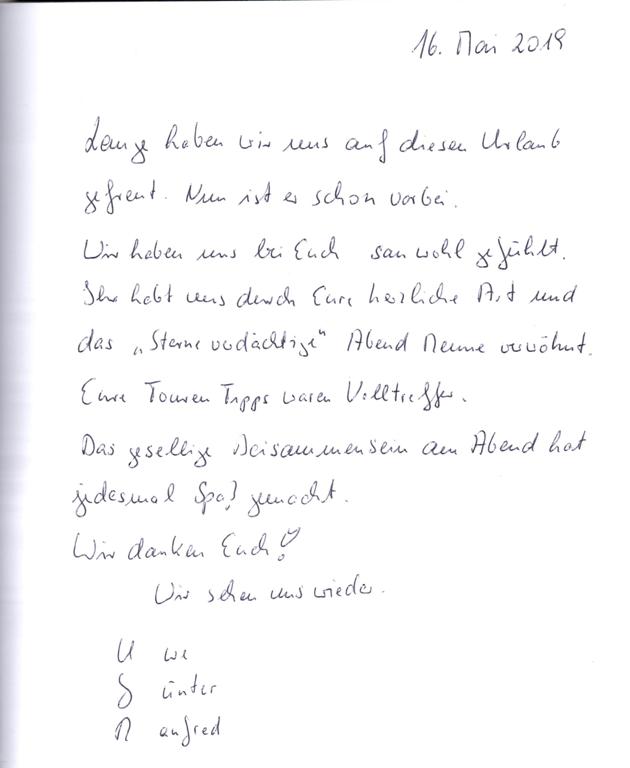 16. Mai 2019
Lange haben wir uns auf diesen Urlaub
gefreut. Nun ist er schon vorbei.
Wir haben uns bei Euch sau wohl gefühlt.
Ihr habt uns durch Eure herzliche Art und
das „Sterne verdächtige" Abend Menue verwöhnt.
Eure Touren Tipps waren Volltreffer.
Das gesellige Beisammensein am Abend hat
jedesmal Spaß gemacht.
Wir danken Euch!
Wir sehen uns wieder.
U we
G ünter
M anfred